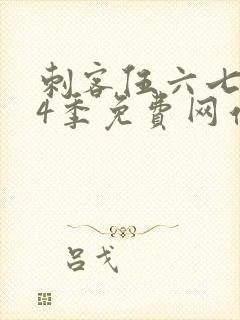 刺客伍六七
4季免费网
吕戈